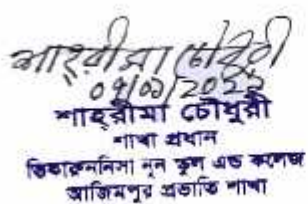 শাহ্‌রীমা চৌধুরী
শাহ্‌রীমা চৌধুরী
শাখা প্রধান
ভিকারুননিসা নূন স্কুল এন্ড কলেজ
আজিমপুর প্রভাতি শাখা